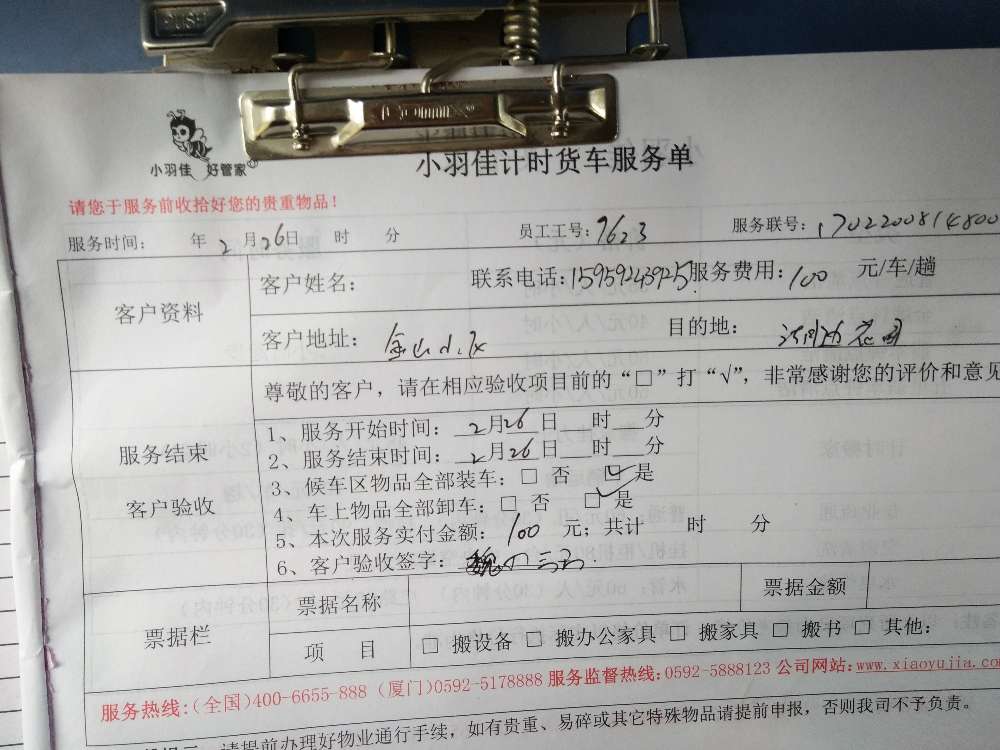 小羽佳 好管家
小羽佳计时货车服务单
请您于服务前收拾好您的贵重物品!
服务时间: 年 2月26日 时 分 员工工号:7623 服务联号:1702200814800
客户资料
客户姓名: 联系电话:15959243925 服务费用:100 元/车/趟
客户地址: 金山小区 目的地: 花园
服务结束
客户验收
尊敬的客户,请在相应验收项目前的“□”打“√”,非常感谢您的评价和意见
1、服务开始时间: 2月26日 时 分
2、服务结束时间: 2月26日 时 分
3、候车区物品全部装车:□ 否 ☑ 是
4、车上物品全部卸车:□ 否 ☑ 是
5、本次服务实付金额:100 元;共计 时 分
6、客户验收签字: 魏
票据栏
票据名称 票据金额
项 目 □ 搬设备 □ 搬办公家具 □ 搬家具 □ 搬书 □ 其他:
服务热线:(全国)400-6655-888 (厦门)0592-5178888 服务监督热线:0592-5888123 公司网站:www.xiaoyujia.com
请提前办理好物业通行手续,如有贵重、易碎或其它特殊物品请提前申报,否则我司不予负责。